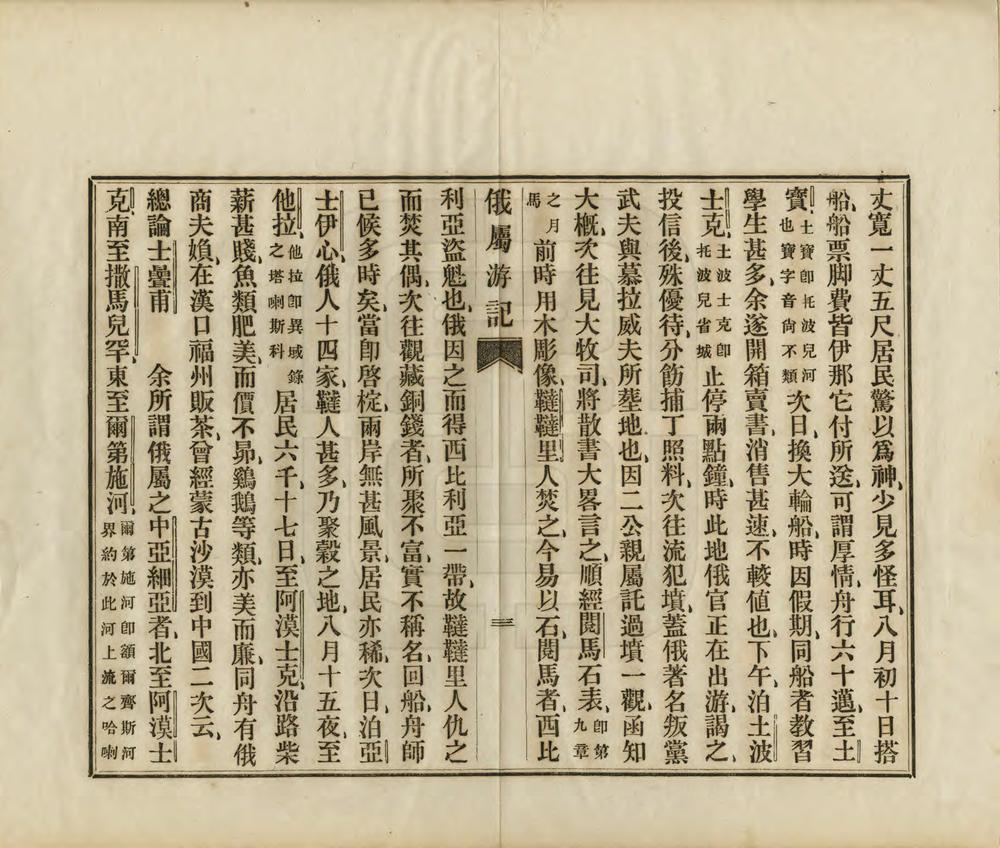 丈寬一丈五尺居民驚以爲神少見多怪耳八月初十日搭
船船票脚費皆伊那它付所送可謂厚情舟行六十邁至土
寶土寶卽托波兒河也寶字音尙不類次日換大輪船時因假期同船者教習
學生甚多余遂開箱賣書消售甚速不較値也下午泊土波
士克土波士克卽托波兒省城止停兩點鐘時此地俄官正在出游謁之
投信後殊優待分飭捕丁照料次往流犯墳蓋俄著名叛黨
武夫與慕拉威夫所塟地也因二公親屬託過墳一觀函知
大槪次往見大牧司將散書大畧言之順經閱馬石表卽第九章
之月馬前時用木彫像韃韃里人焚之今易以石閱馬者西比
俄屬游記
三
利亞盜魁也俄因之而得西比利亞一帶故韃韃里人仇之
而焚其偶次往觀藏銅錢者所聚不富實不稱名回船舟師
已候多時矣當卽啓椗兩岸無甚風景居民亦稀次日泊亞
士伊心俄人十四家韃人甚多乃聚穀之地八月十五夜至
他拉他拉卽異域錄之塔喇斯科居民六千十七日至阿漠士克沿路柴
薪甚賤魚類肥美而價不昻鷄鵝等類亦美而廉同舟有俄
商夫媍在漢口福州販茶曾經蒙古沙漠到中國二次云
總論士曇甫　余所謂俄屬之中亞細亞者北至阿漠士
克南至撒馬兒罕東至爾第施河爾第施河卽額爾齊斯河界約於此河上流之哈喇